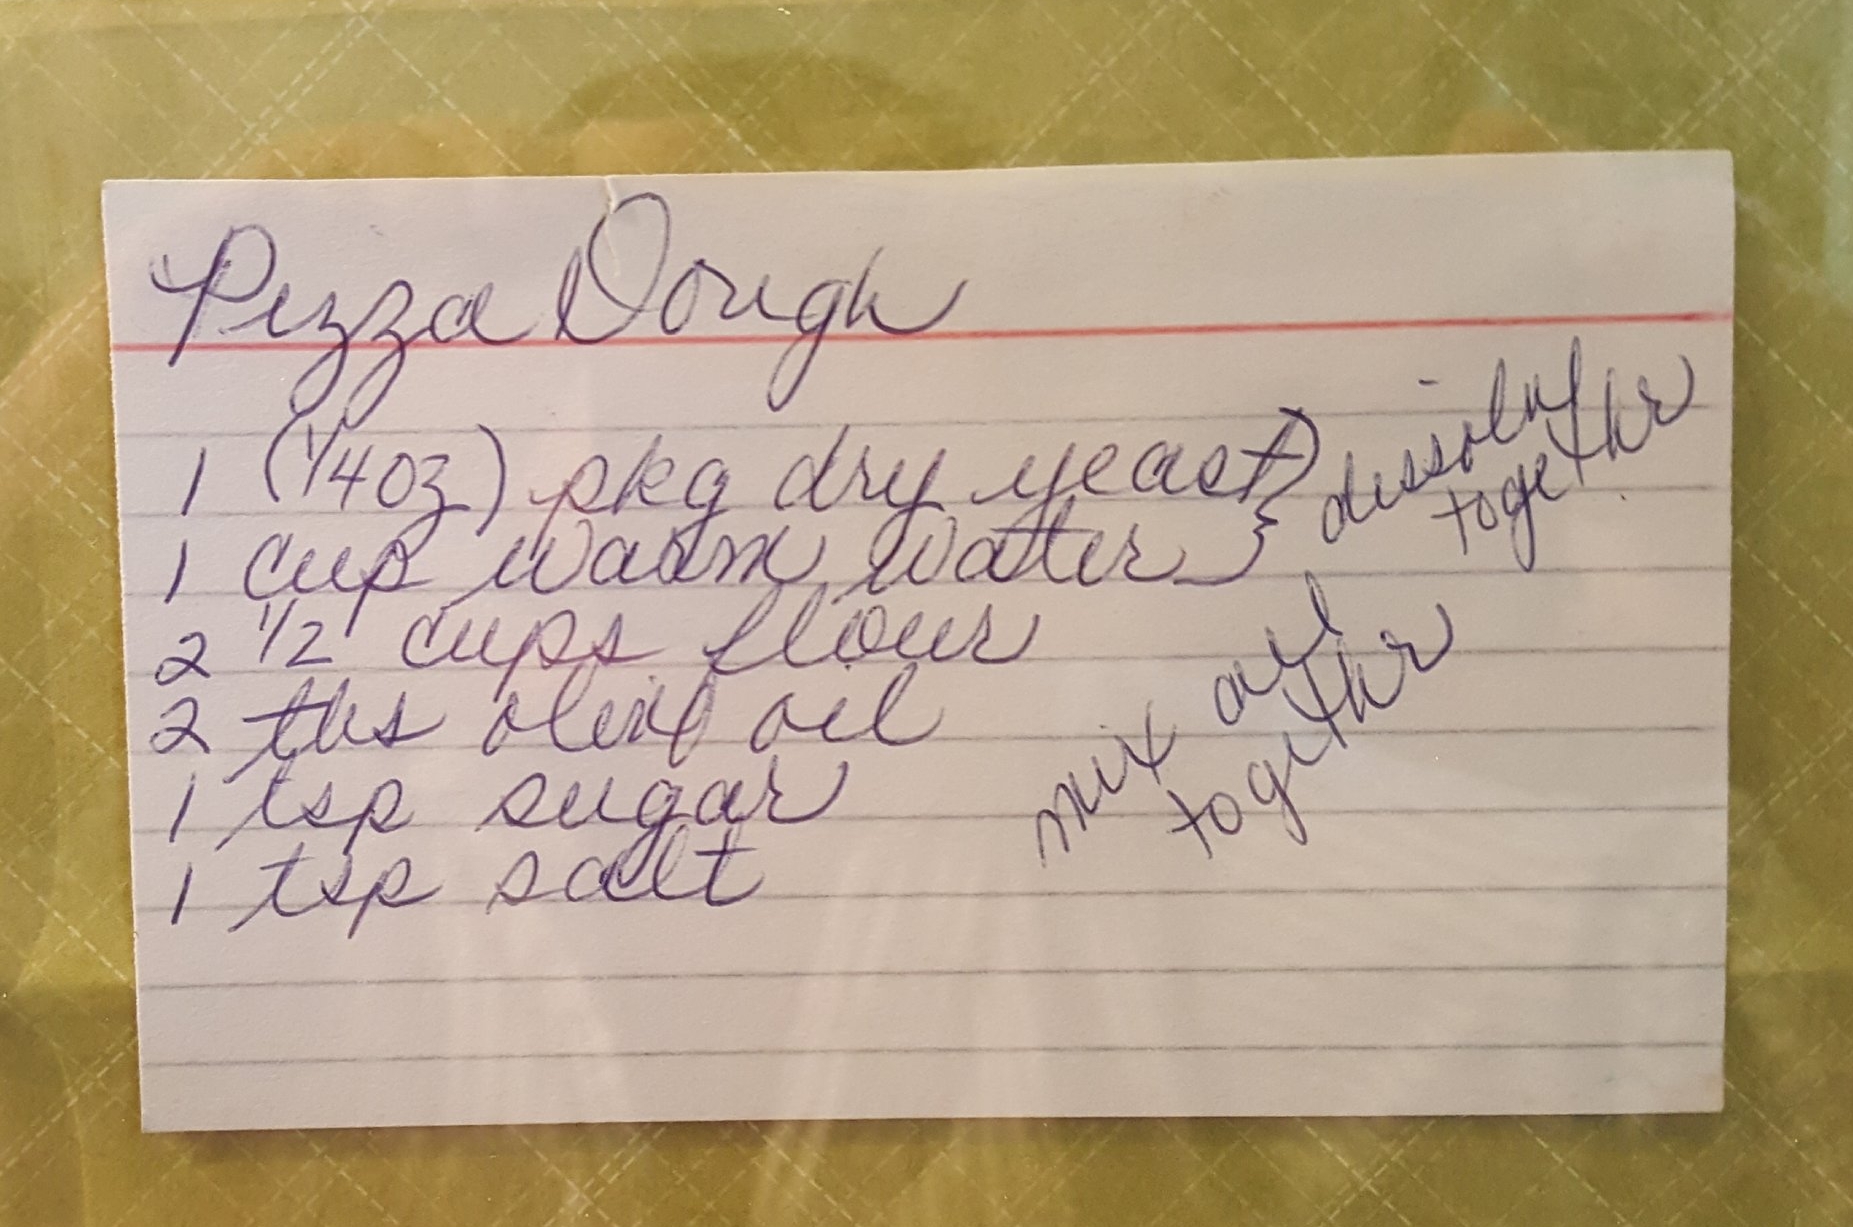 Pizza Dough
1 (1/4 oz) pkg dry yeast
1 cup warm water
dissolve
together
2 1/2 cups flour
2 tbs olive oil
1 tsp sugar
1 tsp salt
mix all
together